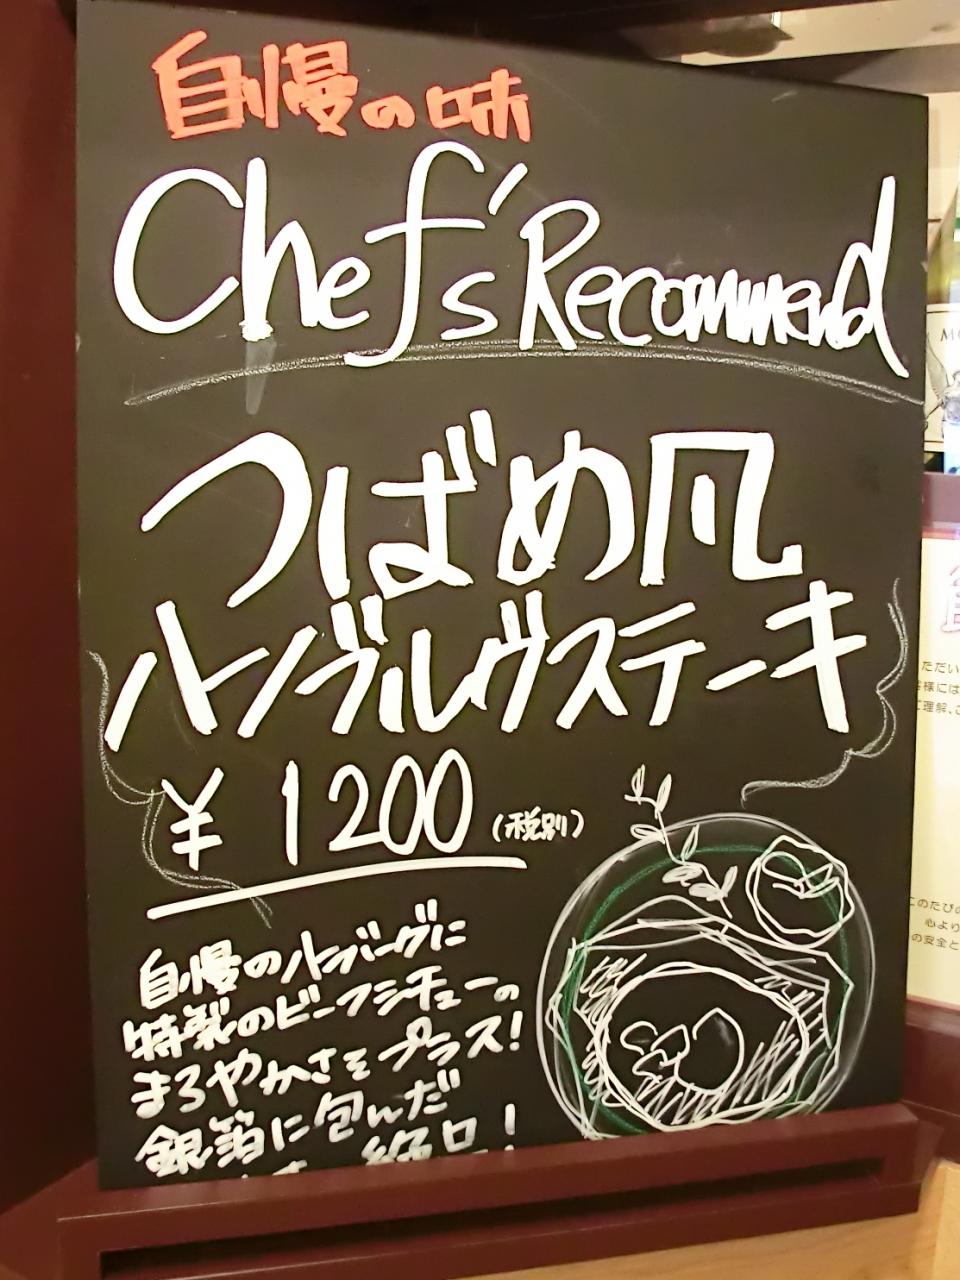 自慢の味
Chef's Recommend
つばめ風
ハンブルグステーキ
¥1200(税別)
自慢のハンバーグに
特製のビーフシチューの
まろやかさをプラス!
銀箔に包んだ
絶品!
ただい
様には
理解、
このたびの
心より
の安全と